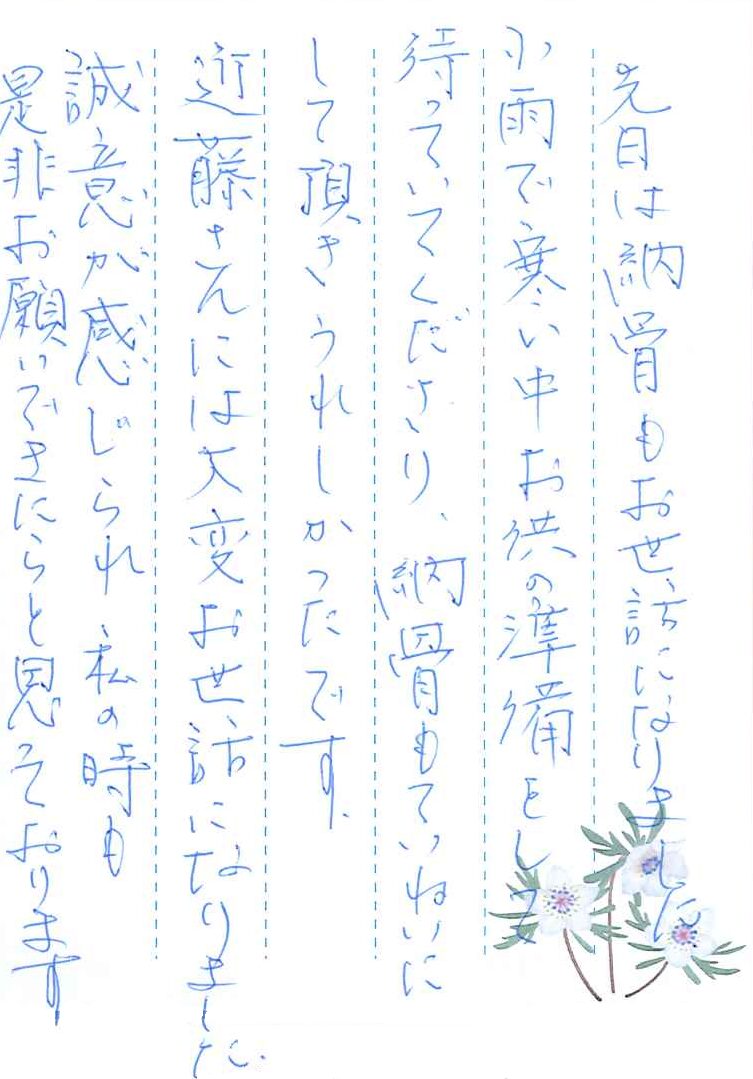 先日は納骨もお世話になりました
小雨で寒い中お供の準備をして
待っていてくださり、納骨もていねいに
して頂きうれしかったです。
近藤さんには大変お世話になりました。
誠意が感じられ、私の時も
是非お願いできたらと思っております